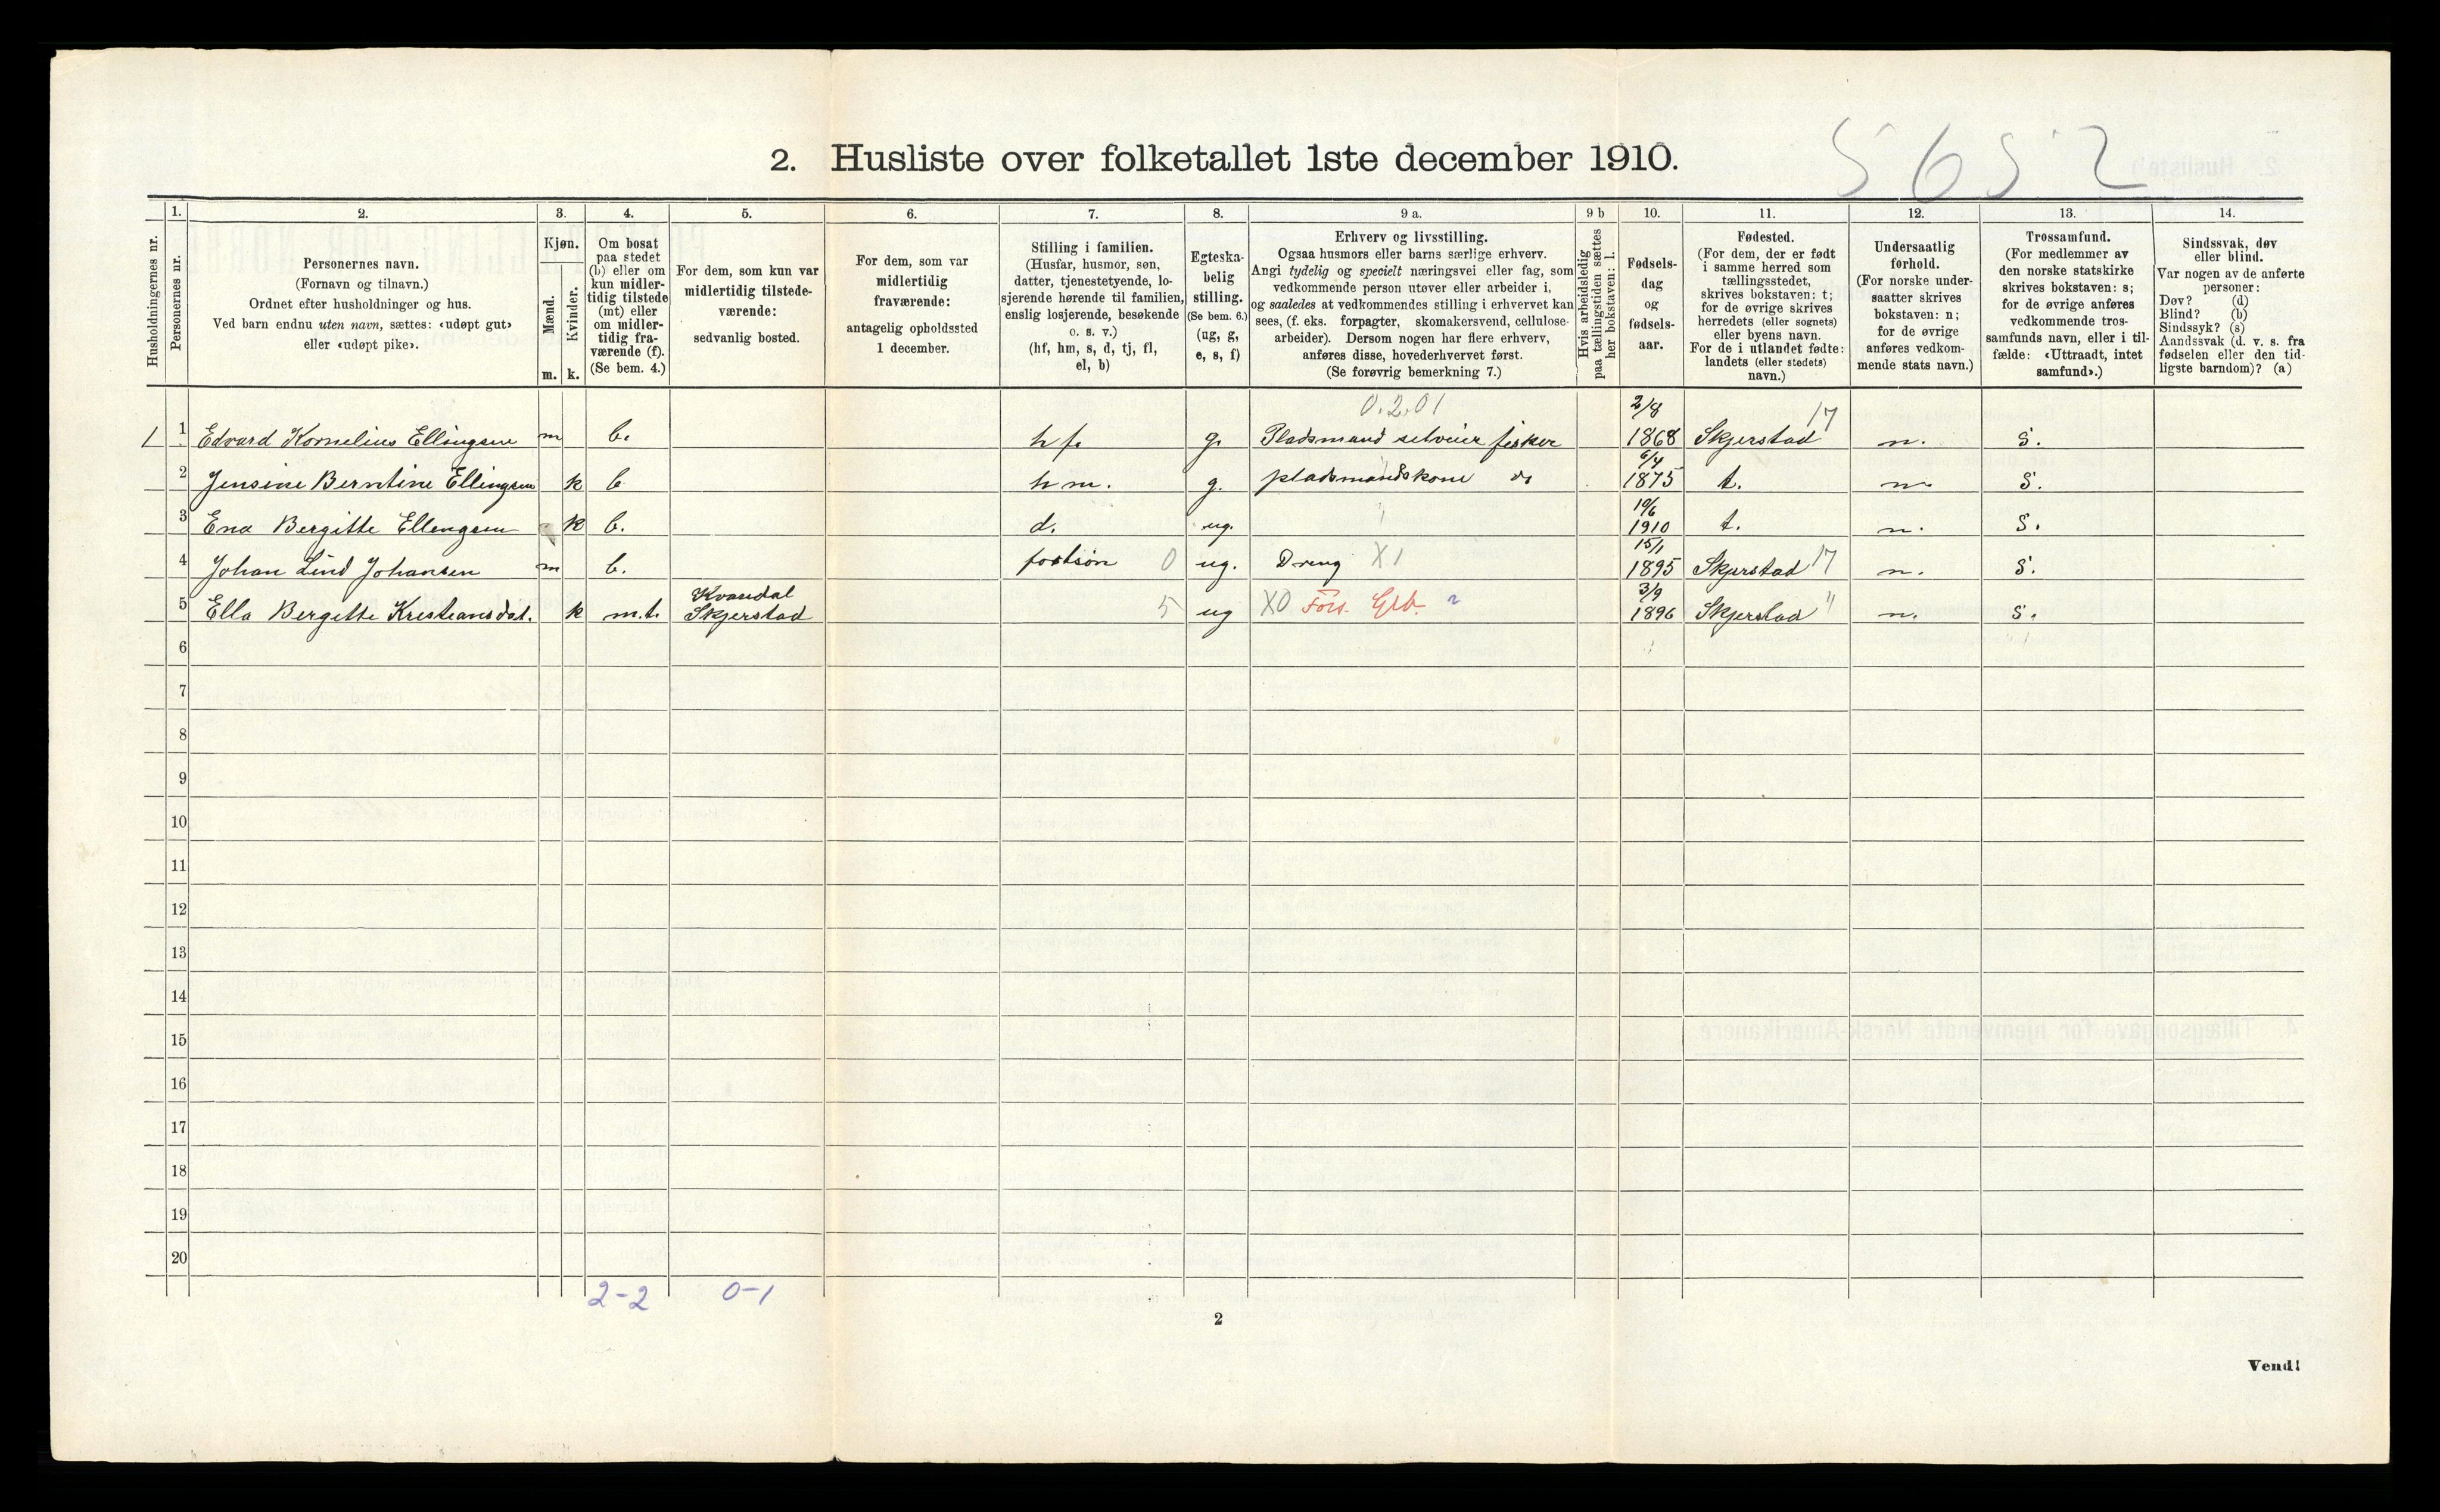 5652
2. Husliste over folketallet 1ste december 1910.
Husholdningernes nr.
1.
Personernes nr.
2.
Personernes navn.
(Fornavn og tilnavn.)
Ordnet efter husholdninger og hus.
Ved barn endnu uten navn, sættes: «udøpt gut»
eller «udøpt pike».
3.
Kjøn.
Mænd.
Kvinder.
m. k.
4.
Om bosat
paa stedet
(b) eller om
kun midler-
tidig tilstede
(mt) eller
om midler-
tidig fra-
værende (f).
(Se bem. 4.)
5.
For dem, som kun var
midlertidig tilstede-
værende:
sedvanlig bosted.
6.
For dem, som var
midlertidig
fraværende:
antagelig opholdssted
1 december.
7.
Stilling i familien.
(Husfar, husmor, søn,
datter, tjenestetyende, lo-
sjerende hørende til familien,
enslig losjerende, besøkende
o. s. v.)
(hf, hm, s, d, tj, fl,
el, b)
8.
Egteska-
belig
stilling.
(Se bem. 6.)
(ug, g,
e, s, f)
9 a.
Erhverv og livsstilling.
Ogsaa husmors eller barns særlige erhverv.
Angi tydelig og specielt næringsvei eller fag, som
vedkommende person utøver eller arbeider i,
og saaledes at vedkommendes stilling i erhvervet kan
sees, (f. eks. forpagter, skomakersvend, cellulose-
arbeider). Dersom nogen har flere erhverv,
anføres disse, hovederhvervet først.
(Se forøvrig bemerkning 7.)
9 b
Hvis arbeidsledig
paa tællingstiden sættes
her bokstaven: l.
10.
Fødsels-
dag
og
fødsels-
aar.
11.
Fødested.
(For dem, der er født
i samme herred som
tællingsstedet,
skrives bokstaven: t;
for de øvrige skrives
herredets (eller sognets)
eller byens navn.
For de i utlandet fødte:
landets (eller stedets)
navn.)
12.
Undersaatlig
forhold.
(For norske under-
saatter skrives
bokstaven: n;
for de øvrige
anføres vedkom-
mende stats navn.)
13.
Trossamfund.
(For medlemmer av
den norske statskirke
skrives bokstaven: s;
for de øvrige anføres
vedkommende tros-
samfunds navn, eller i til-
fælde: «Uttraadt, intet
samfund».)
14.
Sindssvak, døv
eller blind.
Var nogen av de anførte
personer:
Døv? (d)
Blind? (b)
Sindssyk? (s)
Aandssvak (d. v. s. fra
fødselen eller den tid-
ligste barndom)? (a)
0.2.01 2/8 17
1 1 Edvard Kornelius Ellingsen m b. hf. g. Pladsmand selveier fisker 1868 Skjerstad n. S.
6/4
2 Jensine Berntine Ellingsen k b hm. g. pladsmandskone do 1875 t. n. S.
10/6
3 Ena Bergitte Ellengsen k b. d. ug. 1910 t. n. S.
15/1
4 Johan Lind Johansen m b. fostsøn 0 ug. Dreng X1 1895 Skjerstad 17 n. S.
Kvandal 3/9
5 Ella Bergitte Kristiansdat. k m.t. Skjerstad 5 ug X0 Fors. 1896 Skjerstad " n. S.
6
7
8
9
10
11
12
13
14
15
16
17
18
19
20
2-2 0-1
2
Vend!